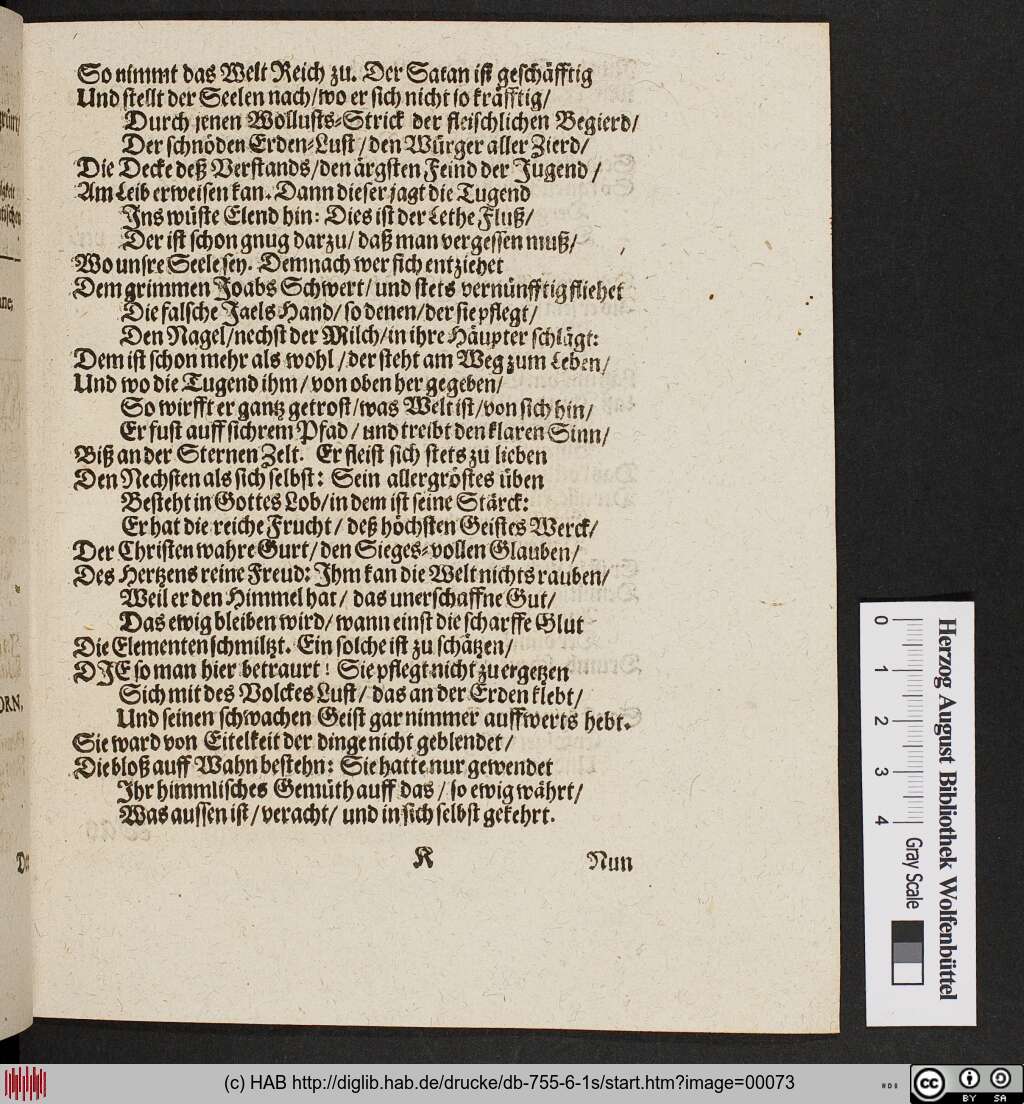 So nimmt das Welt Reich zu. Der Satan ist geschäfftig
Und stellt der Seelen nach/wo er sich nicht so kräfftig/
Durch jenen Wollusts-Strick der fleischlichen Begierd/
Der schnöden Erden-Lust/den Würger aller Zierd/
Die Decke deß Verstands/den ärgsten Feind der Jugend/
Am Leib erweisen kan. Dann dieser jagt die Tugend
Ins wüste Elend hin: Dies ist der Lethe Fluß/
Der ist schon gnug darzu/ daß man vergessen muß/
Wo unsre Seele sey. Demnach wer sich entziehet
Dem grimmen Joabs Schwert/ und stets vernünfftig fliehet
Die falsche Jaels Hand/so denen/der sie pflegt/
Den Nagel/nechst der Milch/in ihre Häupter schlägt:
Dem ist schon mehr als wohl/der steht am Weg zum Leben/
Und wo die Tugend ihm/von oben her gegeben/
So wirfft er gantz getrost/was Welt ist/von sich hin/
Er fust auff sichrem Pfad/und treibt den klaren Sinn/
Biß an der Sternen Zelt. Er fleist sich stets zu lieben
Den Nechsten als sich selbst: Sein allergröstes üben
Besteht in Gottes Lob/in dem ist seine Stärck:
Er hat die reiche Frucht/ deß höchsten Geistes Werck/
Der Christen wahre Gurt/den Sieges-vollen Glauben/
Des Hertzens reine Freud: Ihm kan die Welt nichts rauben/
Weil er den Himmel hat/ das unerschaffne Gut/
Das ewig bleiben wird/wann einst die scharffe Glut
Die Elementen schmiltzt. Ein solche ist zu schätzen/
DJE so man hier betraurt! Sie pflegt nicht zu ergetzen
Sich mit des Volckes Lust/das an der Erden klebt/
Und seinen schwachen Geist gar nimmer auffwerts hebt.
Sie ward von Eitelkeit der dinge nicht geblendet/
Die bloß auff Wahn bestehn: Sie hatte nur gewendet
Ihr himmlisches Gemüth auff das/so ewig währt/
Was aussen ist/veracht/ und in sich selbst gekehrt.
K
Nun
Herzog August Bibliothek Wolfenbüttel
0 1 2 3 4
Gray Scale
(c) HAB http://diglib.hab.de/drucke/db-755-6-1s/start.htm?image=00073
cc BY SA